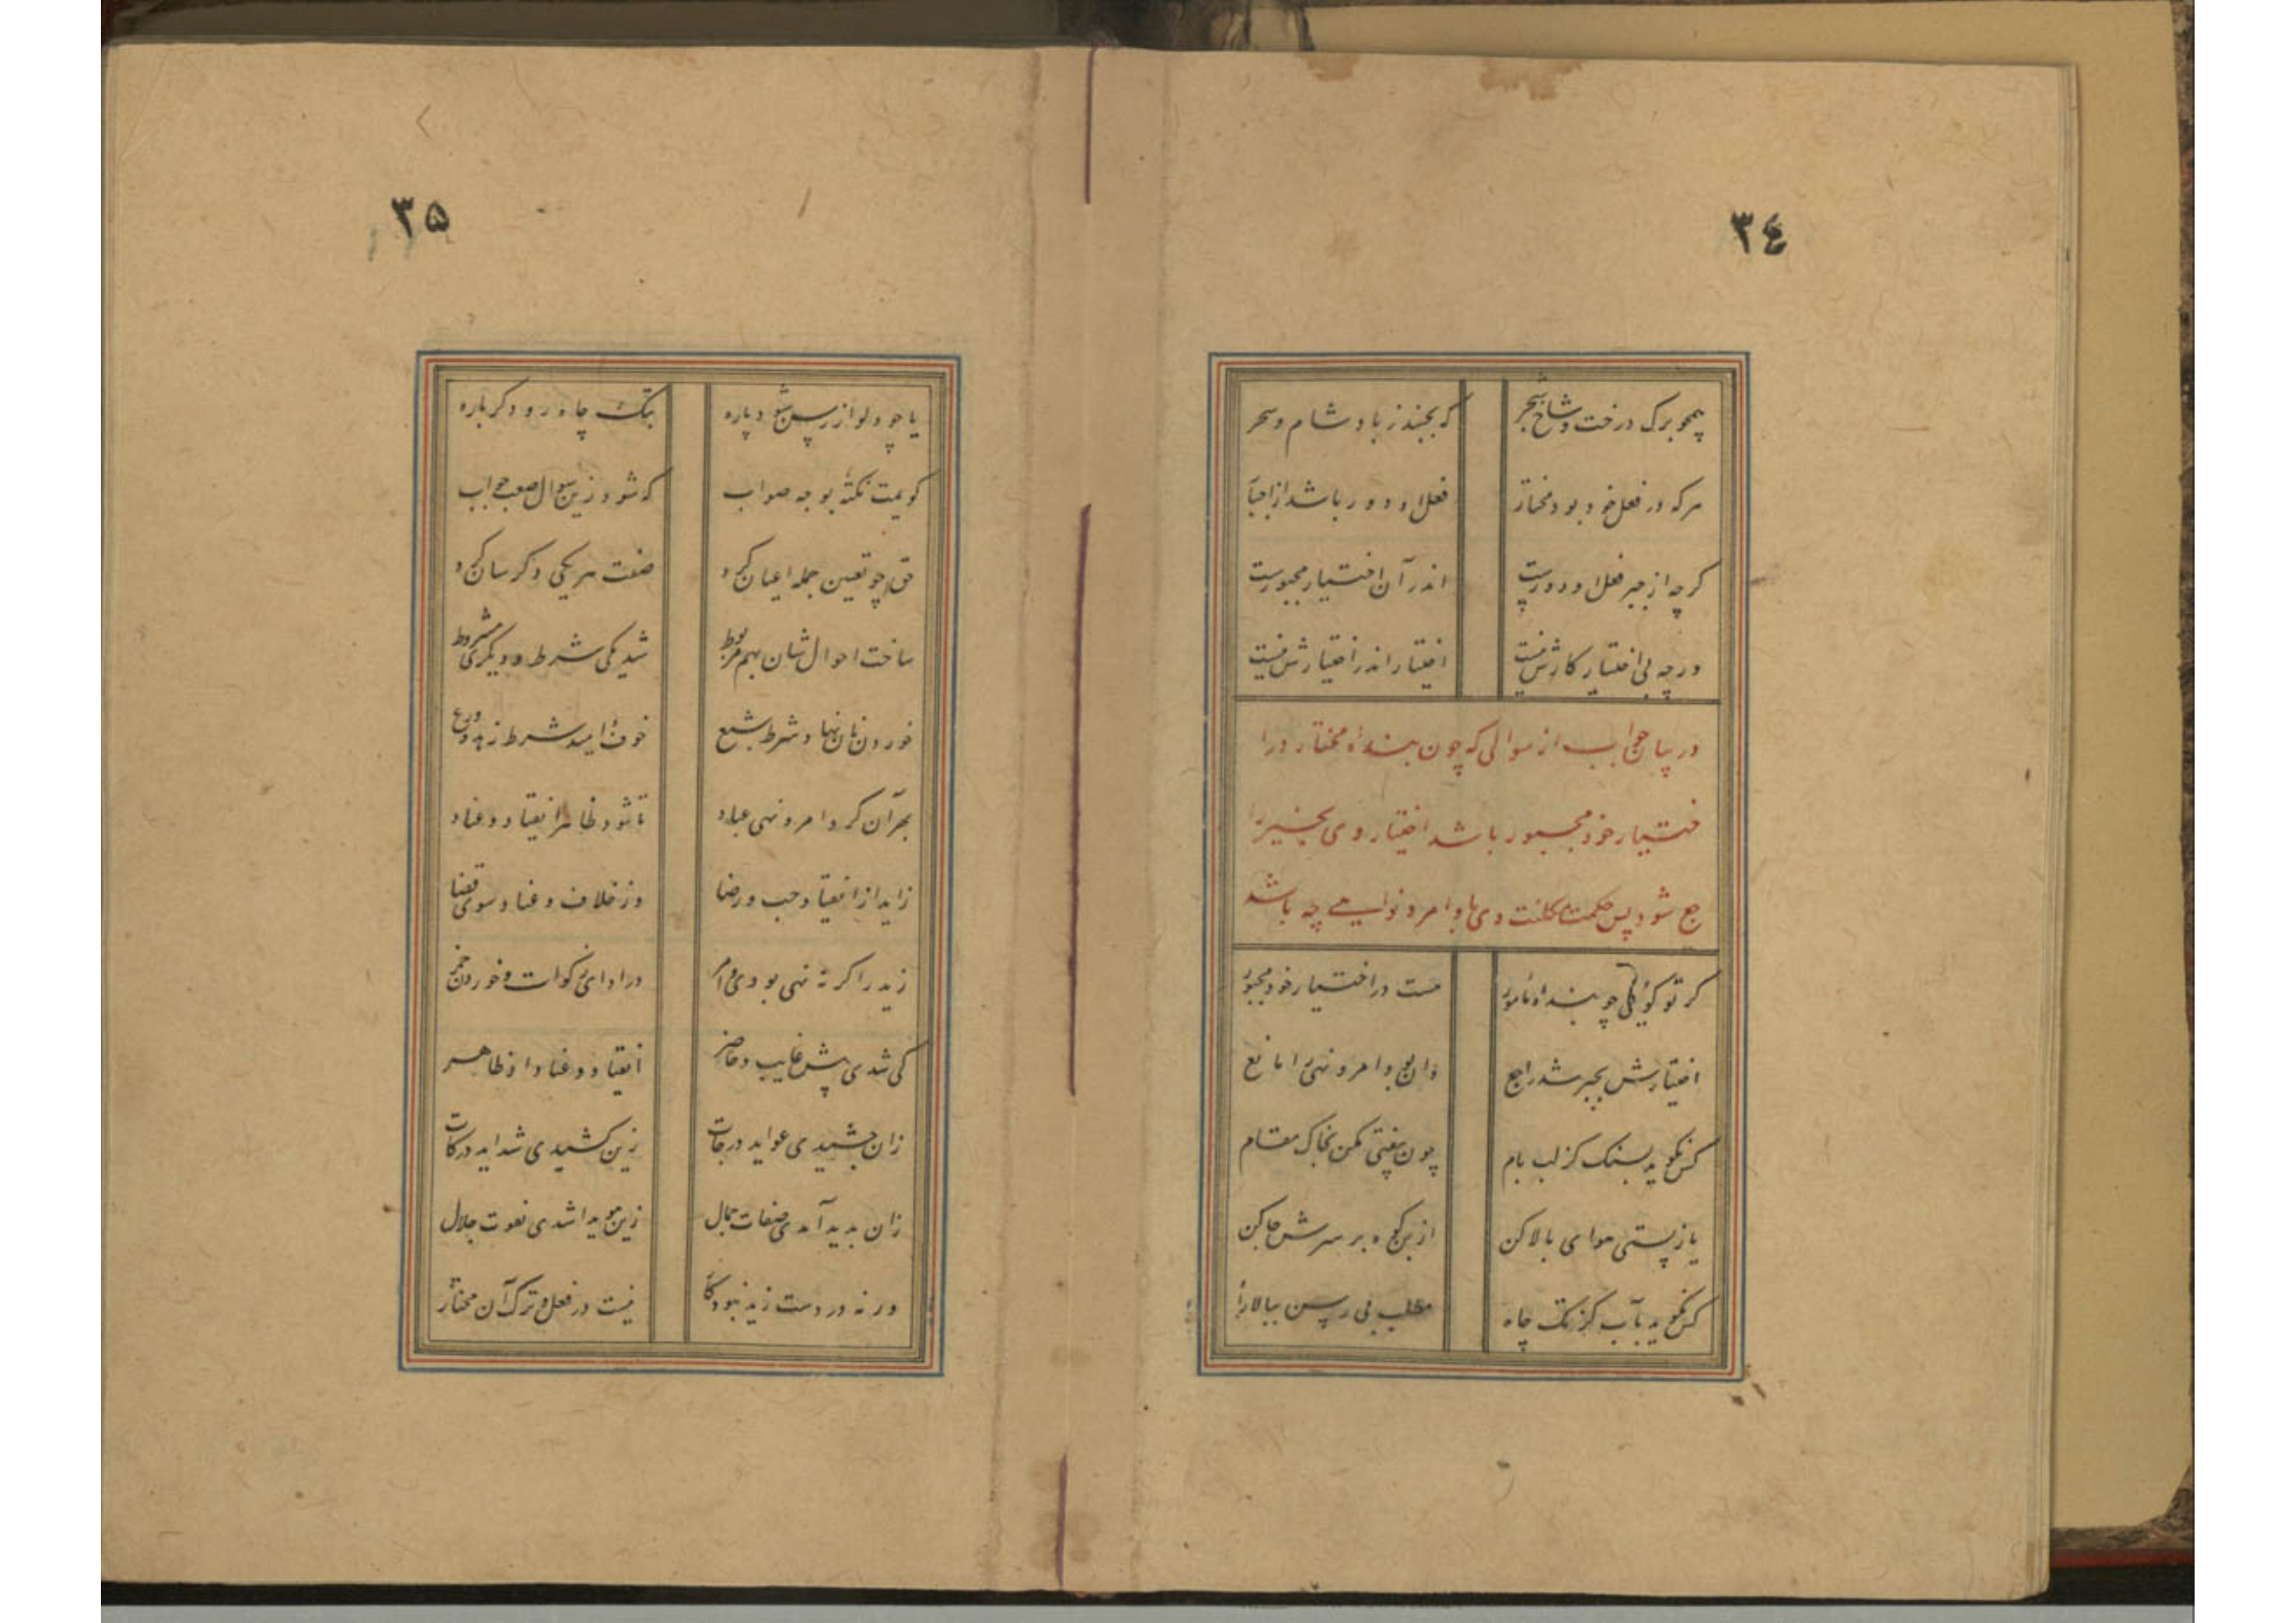 ۳٤
همچو برک درخت و شاخ شجر
که بجنبد ز باد شام و سحر
هرکه در فعل خود بود مختار
فعل او دور باشد از اجبار
کرچه از جبر فعل او دورست
اندر آن اختیار مجبورست
ورچه بی اختیار کارش نیست
اختیار اندر اختیارش نیست
در بیان جواب از سوالی که چون بنده مختار در ا
ختیار خود مجبور باشد اختیار وی بجبر را
جع شود پس حکمت تکلیف وی باوامر و نواهی چه باشد
کر تو کوئی که چو بنده مأمور
هست در اختیار خود مجبور
اختیارش بجبر شد راجع
وان بود امر و نهی را مانع
کس نکوید بسنک کز لب بام
چون بیفتی مکن بخاک مقام
یا ز پستی هوای بالا کن
از بن کوه بر سرش جا کن
کس نکوید بآب کز تک چاه
مطلب بی رسن ببالا راه
۳۵
یا چو دلو از رسن شود پاره
بتک چاه رو دکرباره
کویمت نکته بوجه صواب
که شود زین سوال صعب جواب
حق چو تعیین جمله اعیان کرد
صفت هر یکی دکرسان کرد
ساخت احوال شان بهم مربوط
شد یکی شرط و دیکری مشروط
خوردن نان نهاد شرط شبع
خوف و امید شرط زهد و ورع
بهر آن کرد امر و نهی عباد
تا شود ظاهر انقیاد و عناد
زاید از انقیاد حب و رضا
وز خلاف و عناد سوی قضا
زید را کر نه نهی بودی و امر
در ادای زکوات و خوردن خمر
کی شدی پیش غایب و حاضر
انقیاد و عناد او ظاهر
زان چشیدی عواید درجات
زین کشیدی شداید درکات
زان بدید آمدی صفات جمال
زین هویدا شدی نعوت جلال
ورنه در دست زید نبود کار
نیست در فعل و ترک آن مختار